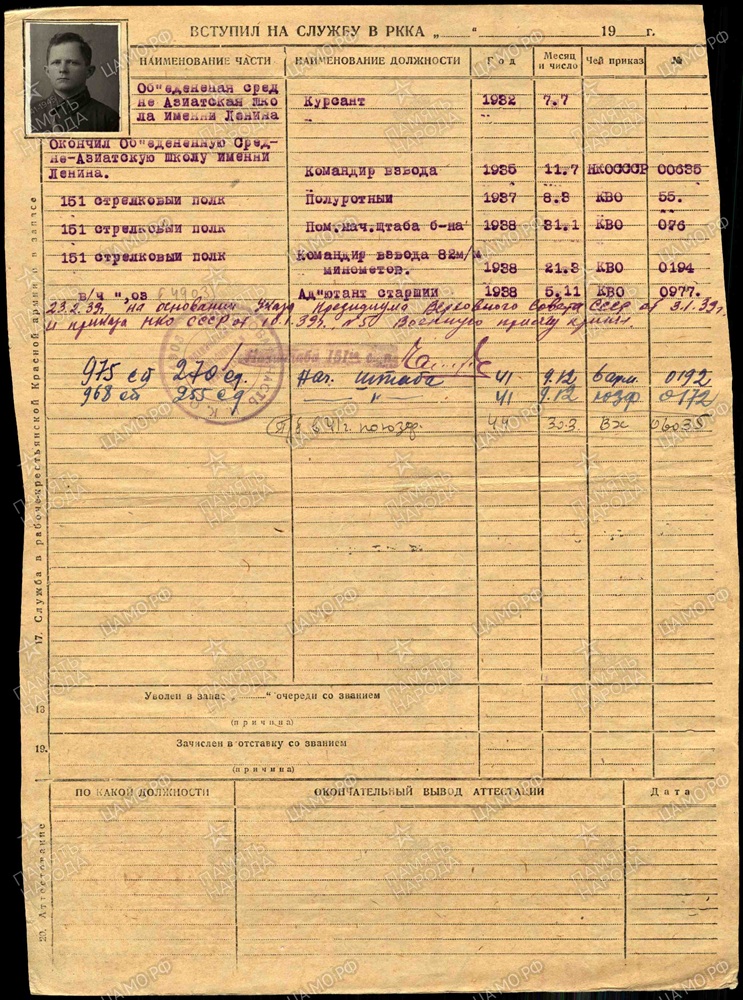 ВСТУПИЛ НА СЛУЖБУ В РККА „ “ 19 г.
НАИМЕНОВАНИЕ ЧАСТИ НАИМЕНОВАНИЕ ДОЛЖНОСТИ Год Месяц и число Чей приказ №
Об"едененая сред
не Азиатская шко
ла имени Ленина Курсант 1932 7.7
Окончил Об"едененную Сред-
не-Азиатскую школу имении
Ленина. Командир взвода 1935 11.7 НКОСССР 00635
151 стрелковый полк Полуротный 1937 8.3 КВО 55.
151 стрелковый полк Пом.нач.штаба б-на 1938 31.1 КВО 076
151 стрелковый полк Командир взвода 82м/м
минометов. 1938 21.3 КВО 0194
в/ч Ад"ютант старший 1938 5.11 КВО 0977.
23.2.39г. на основании Указа Президиума Верховного Совета СССР от 3.1.39г.
и приказа НКО СССР от 10.1.39г. №5 Военную присягу принял.
975 сп 270 сд. Нач. штаба 41 9.12 6 арм. 0192
968 сп 255 сд. " 41 9.12 ЮЗФ 0172
41г. по ЮЗФ. 44 30.3. ВХ 06035
17. Служба в рабоче-крестьянской Красной армии и в запасе
18 Уволен в запас „ “ очереди со званием
(причина)
19. Зачислен в отставку со званием
(причина)
ПО КАКОЙ ДОЛЖНОСТИ ОКОНЧАТЕЛЬНЫЙ ВЫВОД АТТЕСТАЦИИ Дата
20. Аттестование
ПАМЯТЬ НАРОДА
ЦАМО.РФ